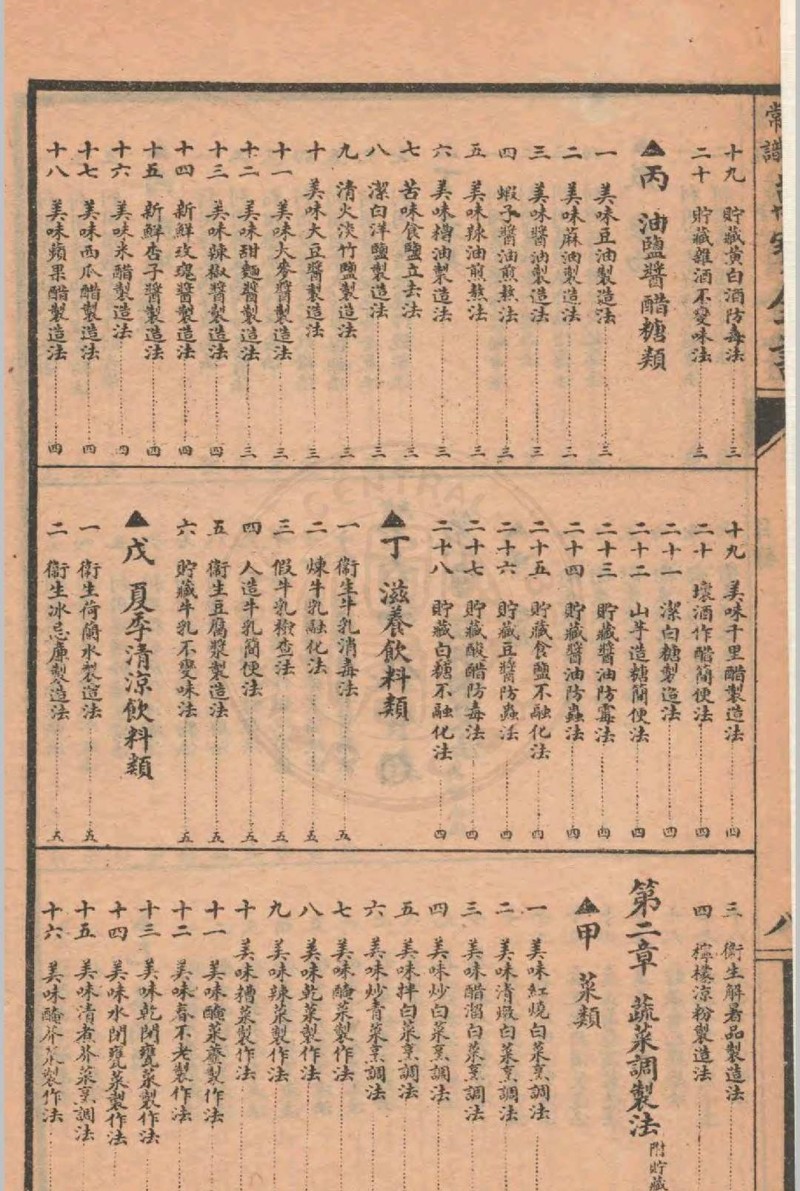 十九 貯藏黃白酒防毒法 三
二十 貯藏雜酒不變味法 三
▲丙 油鹽醬醋糖類
一 美味豆油製造法 三
二 美味蔴油製造法 二
三 美味醬油製造法 三
四 蝦子醬油煎熬法 三
五 美味辣油煎熬法 三
六 美味糟油製造法 三
七 苦味食鹽立去法 三
八 潔白洋鹽製造法 三
九 清火淡竹鹽製造法 三
十 美味大豆醬製造法 三
十一 美味大麥醬製造法 三
十二 美味甜麵醬製造法 三
十三 美味辣椒醬製造法 四
十四 新鮮玫瑰醬製造法 四
十五 新鮮杏子醬製造法 四
十六 美味米醋製造法 四
十七 美味西瓜醋製造法 四
十八 美味蘋果醋製造法 四
十九 美味千里醋製造法 四
二十 壞酒作醋簡便法 四
二十一 潔白糖製造法 四
二十二 山芋造糖簡便法 四
二十三 貯藏醬油防霉法 四
二十四 貯藏醬油防蟲法 四
二十五 貯藏食鹽不融化法 四
二十六 貯藏豆醬防蟲法 四
二十七 貯藏酸醋防毒法 四
二十八 貯藏白糖不融化法 四
▲丁 滋養飲料類
一 衞生牛乳消毒法 五
二 煉牛乳融化法 五
三 假牛乳檢查法 五
四 人造牛乳簡便法 五
五 衞生豆腐漿製造法 五
六 貯藏牛乳不變味法 五
▲戊 夏季清涼飲料類
一 衞生荷蘭水製造法 五
二 衞生冰忌廉製造法 五
三 衞生解暑品製造法
四 檸檬涼粉製造法
第二章 蔬菜調製法 附貯藏
▲甲 菜類
一 美味紅燒白菜烹調法
二 美味清燉白菜烹調法
三 美味醋溜白菜烹調法
四 美味炒白菜烹調法
五 美味拌白菜烹調法
六 美味炒青菜烹調法
七 美味醃菜製作法
八 美味乾菜製作法
九 美味辣菜製作法
十 美味糟菜製作法
十一 美味醃菜薹製作法
十二 美味春不老製作法
十三 美味乾閉甕菜製作法
十四 美味水閉甕菜製作法
十五 美味清煮芥菜烹調法
十六 美味醃芥菜製作法
常識
八